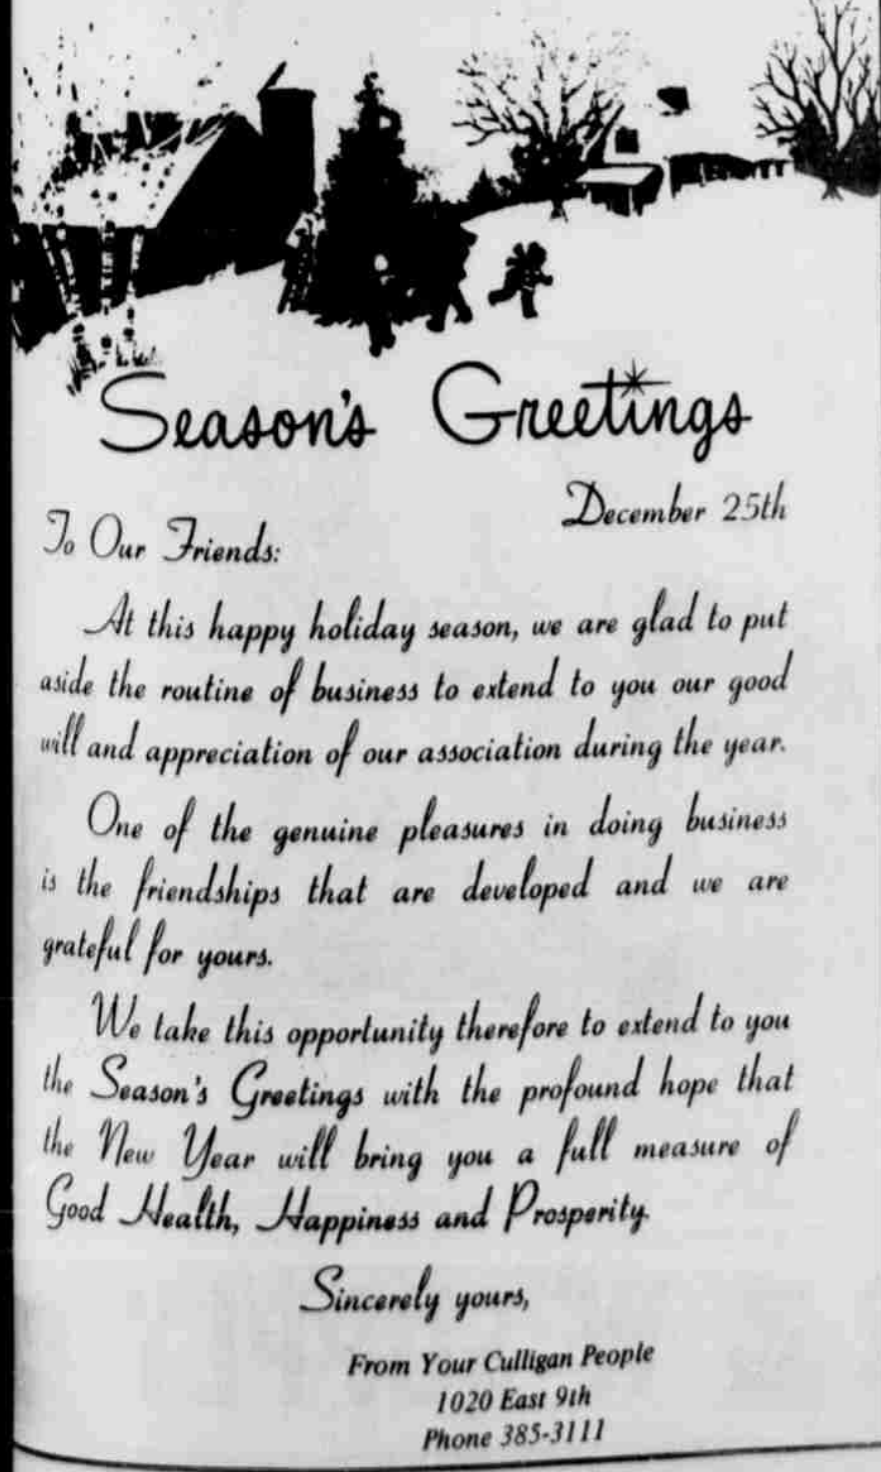 Season's Greetings
December 25th
To Our Friends:
At this happy holiday season, we are glad to put
aside the routine of business to extend to you our good
will and appreciation of our association during the year.
One of the genuine pleasures in doing business
is the friendships that are developed and we are
grateful for yours.
We take this opportunity therefore to extend to you
the Season's Greetings with the profound hope that
the New Year will bring you a full measure of
Good Health, Happiness and Prosperity.
Sincerely yours,
From Your Culligan People
1020 East 9th
Phone 385-3111